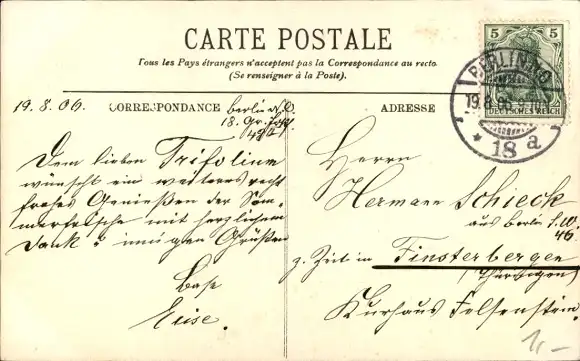 CARTE POSTALE
Tous les Pays étrangers n'acceptent pas la Correspondance au recto
(Se renseigner à la Poste).
19.8.06.
CORRESPONDANCE
Berlin N.O.
18.
Dem lieben Trifolium
wünscht ein weiteres recht
frohes Genießen der Som-
merfrische mit herzlichem
Dank & innigen Grüßen
Base
Elise.
ADRESSE
5 5
DEUTSCHES REICH
BERLIN NO
19.8.06.9-10
* 18 a
Herrn
Hermann Schieck
aus Berlin S.W.
46
z. Zeit in Finsterbergen
(Thüringen)
Kurhaus Felsenstein.
1,-